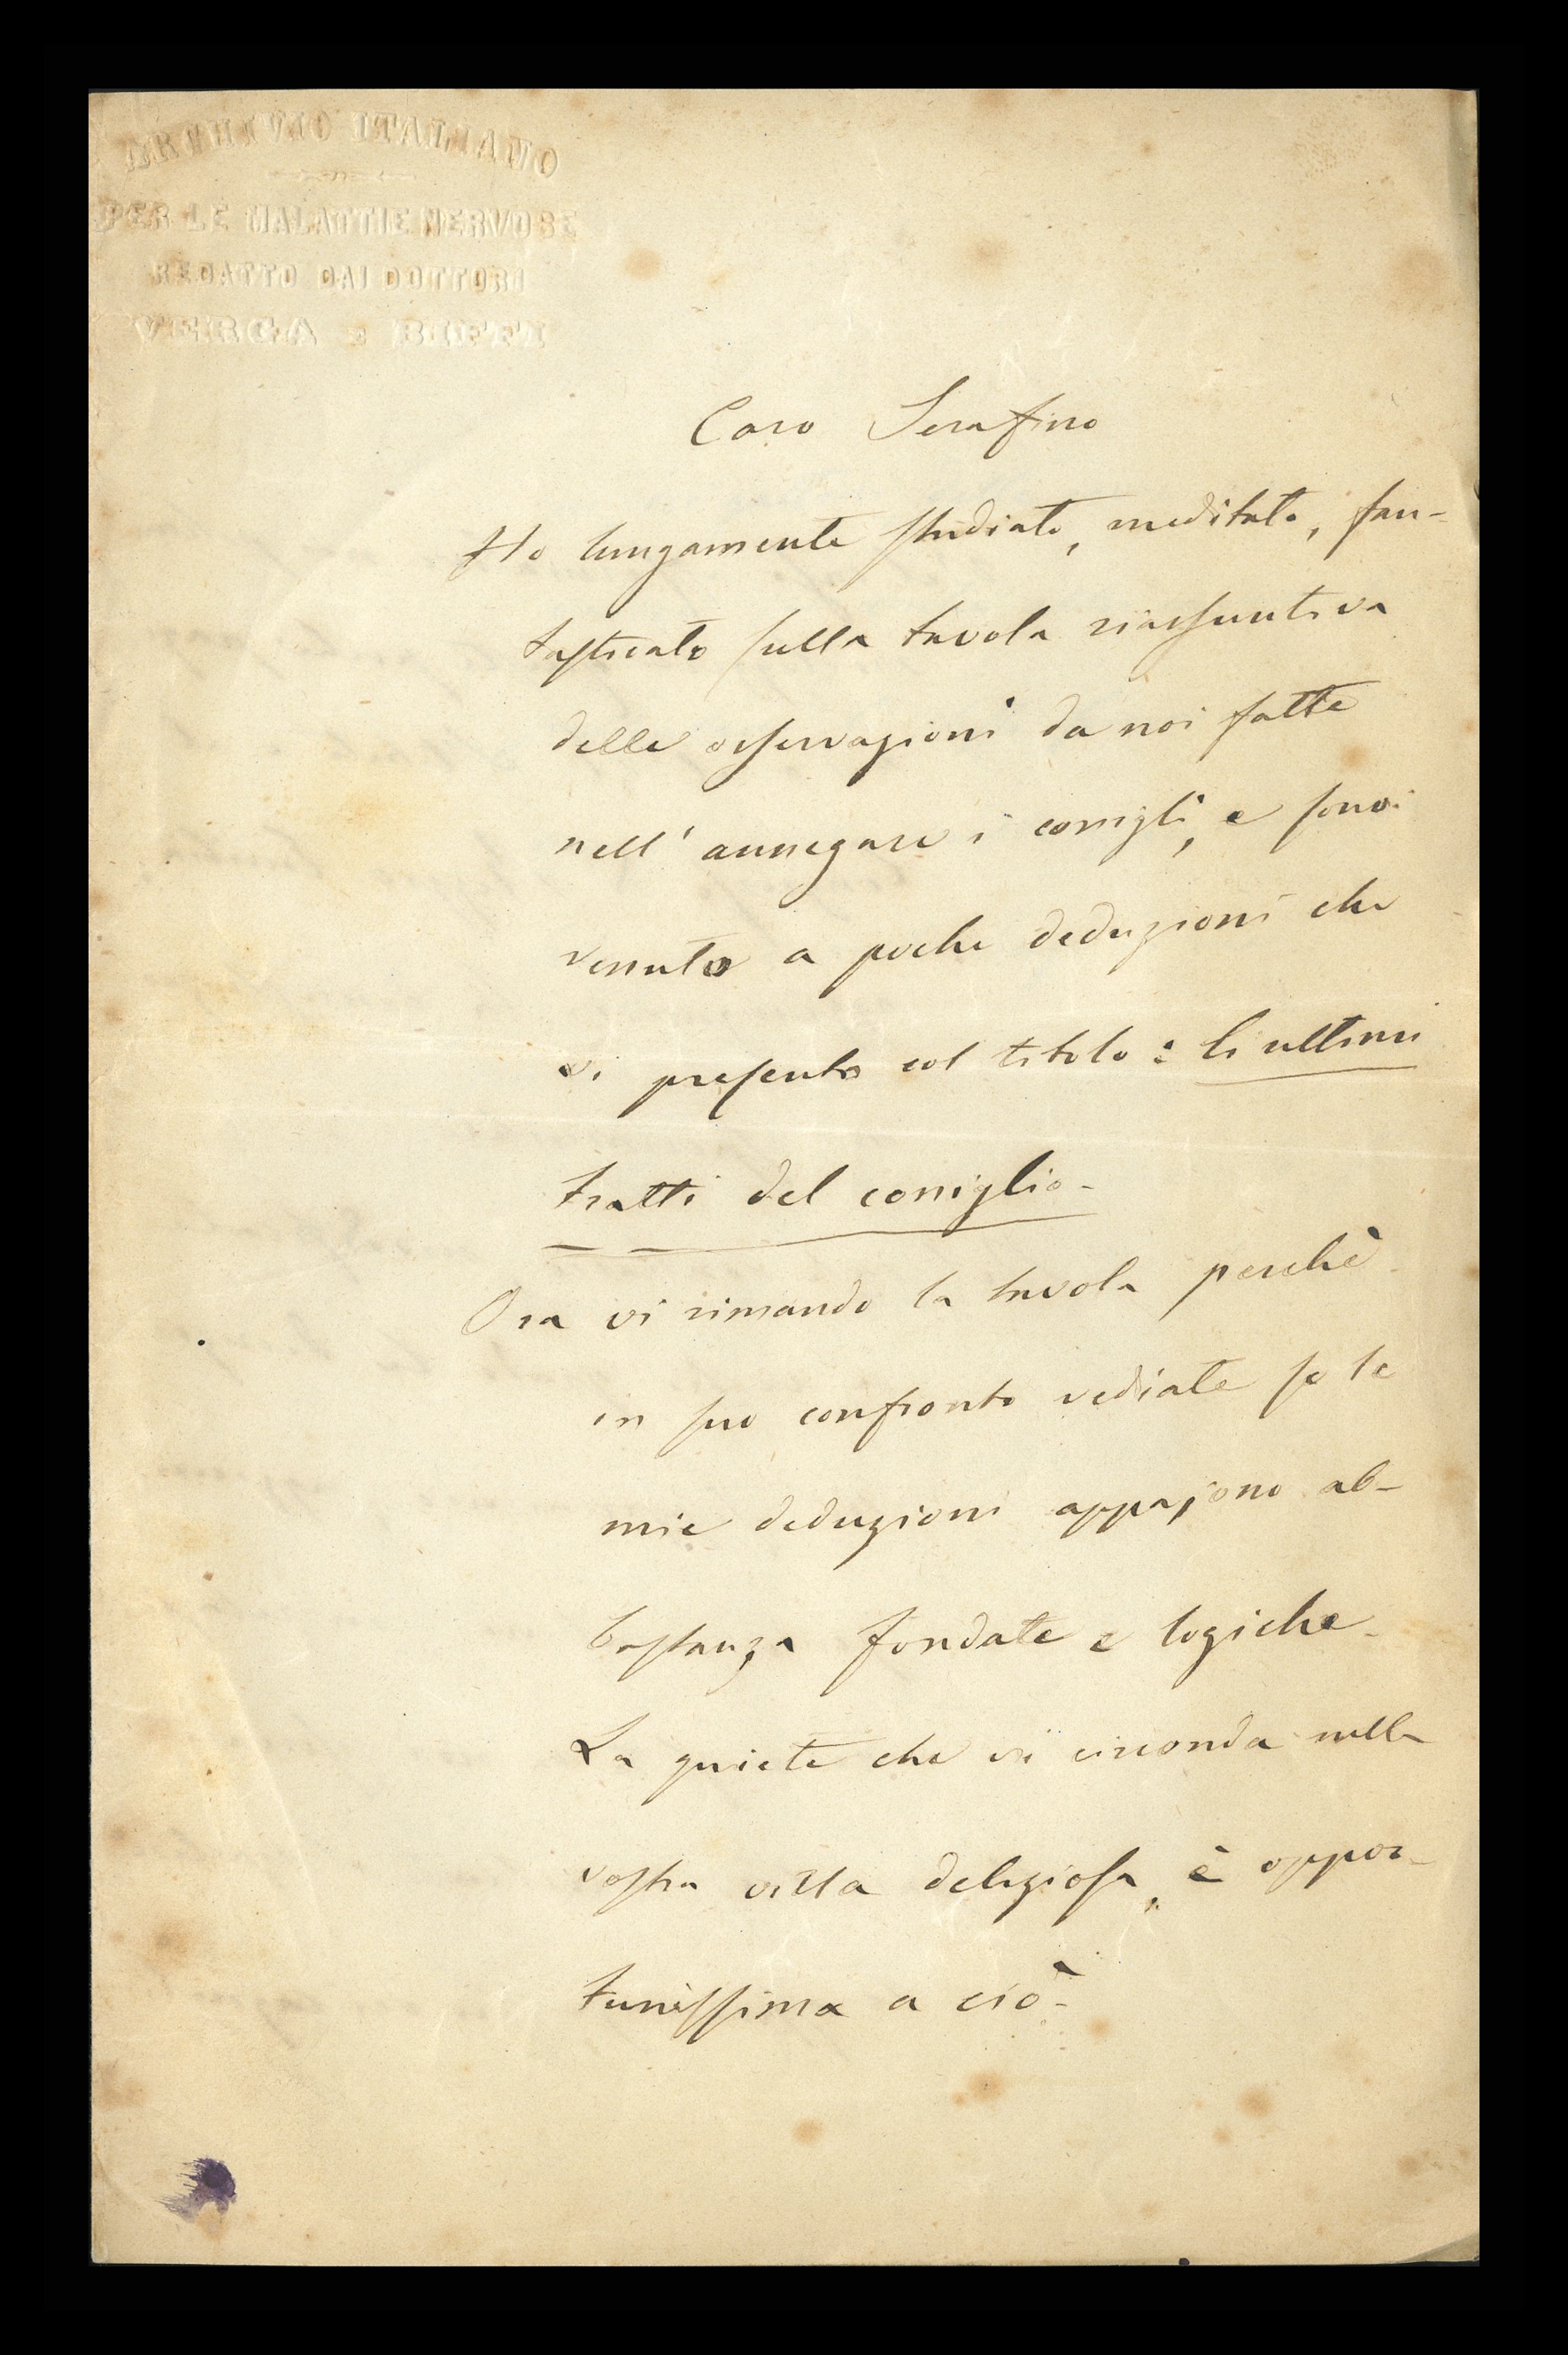 ARCHIVIO ITALIANO
PER LE MALATTIE NERVOSE
REDATTO DAI DOTTORI
VERGA E BIFFI
Caro Serafino
Ho lungamente studiato, meditato, fan-
tasticato sulla tavola riassuntiva
delle osservazioni da noi fatte
nell' annegare i conigli, e sonvi
venuto a poche deduzioni che
vi presento col titolo: li ultimi
tratti del coniglio-
Ora vi rimando la tavola perchè
in suo confronto vediate se le
mie deduzioni appajono ab-
bastanza fondate e logiche-
La quiete che vi circonda nella
vostra villa deliziosa, è oppor-
tunissima a ciò-